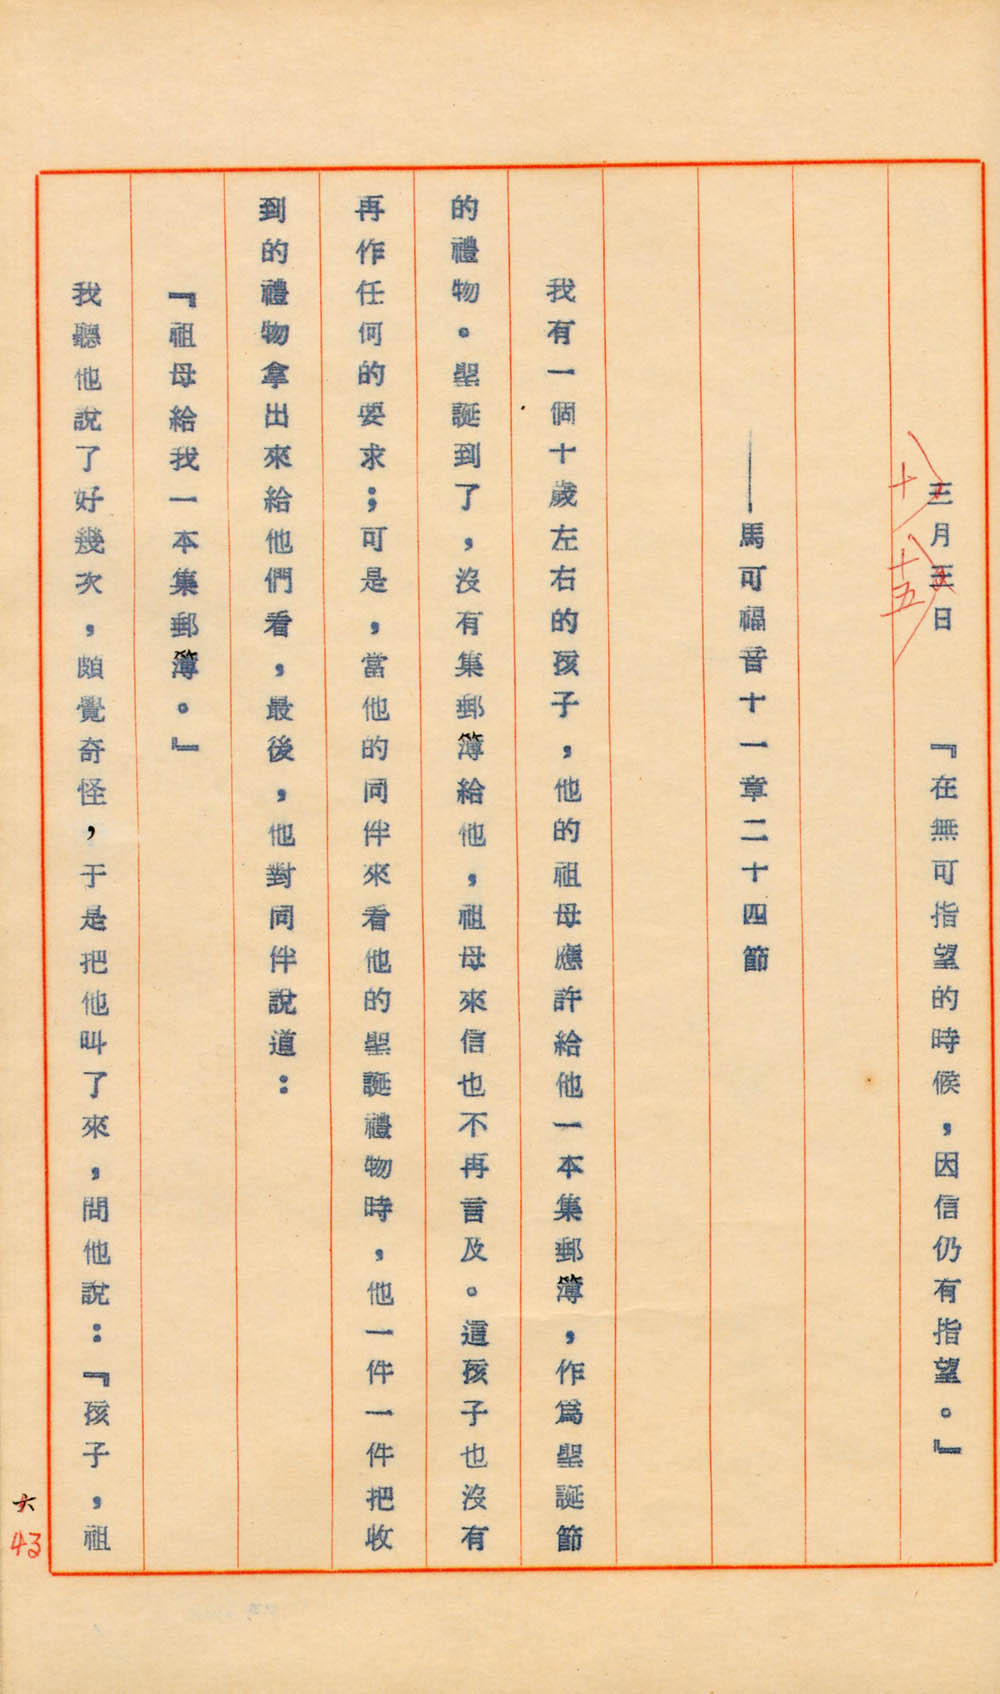 三月三日　『在無可指望的時候，因信仍有指望。』
十
十五
——馬可福音十一章二十四節
我有一個十歲左右的孩子，他的祖母應許給他一本集郵簿，作爲聖誕節
的禮物。聖誕到了，沒有集郵簿給他，祖母來信也不再言及。這孩子也沒有
再作任何的要求；可是，當他的同伴來看他的聖誕禮物時，他一件一件把收
到的禮物拿出來給他們看，最後，他對同伴說道：
『祖母給我一本集郵簿。』
我聽他說了好幾次，頗覺奇怪，于是把他叫了來，問他說：『孩子，祖
六
43